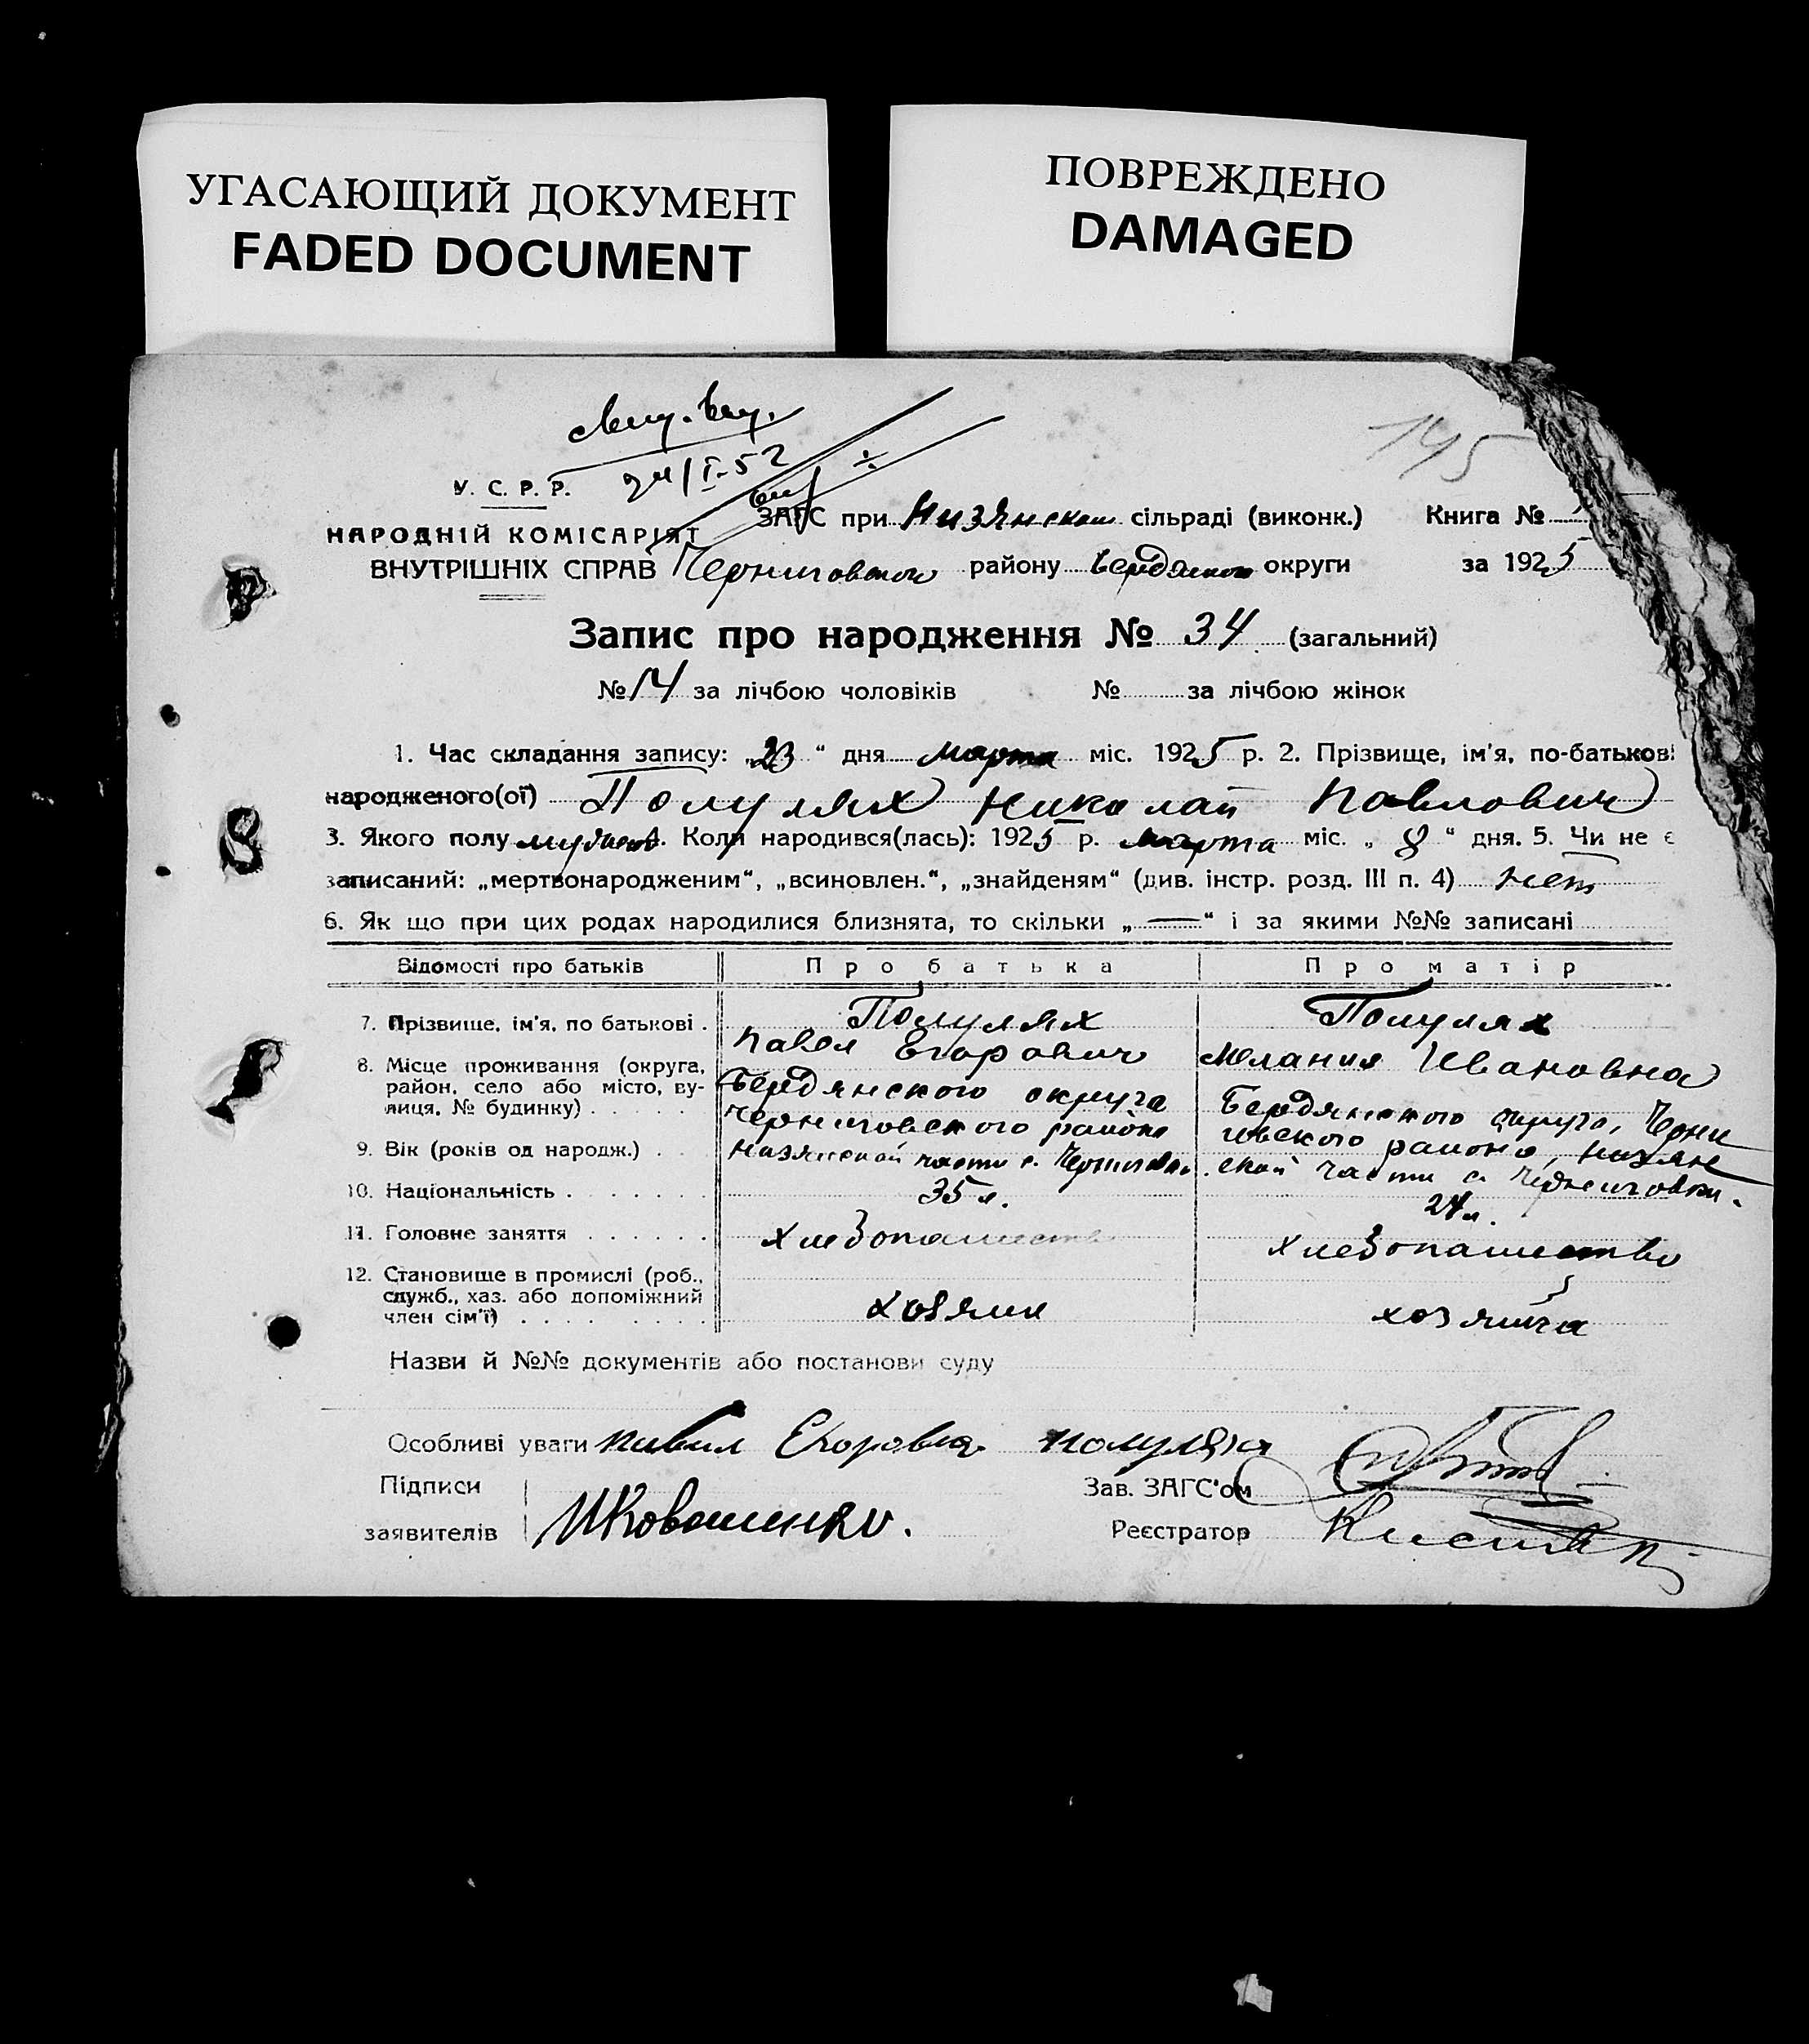 УГАСАЮЩИЙ ДОКУМЕНТ
FADED DOCUMENT
ПОВРЕЖДЕНО
DAMAGED
145
24/I-52
У. С. Р. Р.
НАРОДНІЙ КОМІСАРІЯТ
ВНУТРІШНІХ СПРАВ
ЗАГС при Низянском сільраді (виконк.) Книга №
Черниговского району Бердянского округи за 1925
Запис про народження № 34 (загальний)
№ 14 за лічбою чоловіків № за лічбою жінок
1. Час складання запису: „23“ дня марта міс. 1925 р. 2. Прізвище, ім'я, по-батькові
народженого(ої) Полулях Николай Павлович
3. Якого полу мужеск. Коли народився(лась): 1925 р. марта міс. „8“ дня. 5. Чи не є
записаний: „мертвонародженим“, „всиновлен.“, „знайденям“ (див. інстр. розд. III п. 4) нет
6. Як що при цих родах народилися близнята, то скільки „—“ і за якими №№ записані
Відомості про батьків Про батька Про матір
7. Прізвище, ім'я, по батькові . Полулях Полулях
Павел Егорович Мелания Ивановна
8. Місце проживання (округа,
район, село або місто, ву-
лиця, № будинку) . . . . .
Бердянского округа
Черниговского района
Низянской части с. Черниговки
Бердянского округа, Черни
говского района, Низян
ской части с. Черниговки.
9. Вік (років од народж.) . . .
35 л. 24 л.
10. Національність . . . . . . .
11. Головне заняття . . . . . . хлебопашество хлебопашество
12. Становище в промислі (роб.,
служб., хаз. або допоміжний
член сім'ї) . . . . . . . . хозяин хозяйка
Назви й №№ документів або постанови суду
Особливі уваги Павел Егорович Полулях
Підписи
заявителів
Зав. ЗАГС'ом
Реєстратор